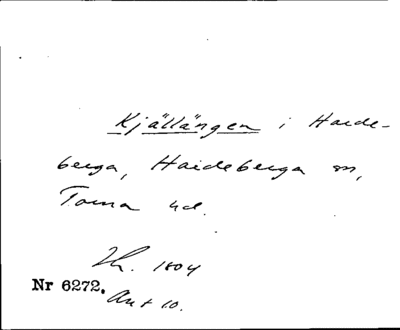 Kjällängen i Harde-
berga, Hardeberga sn,
Torna hd.
1804
Nr 6272.
Akt 10.